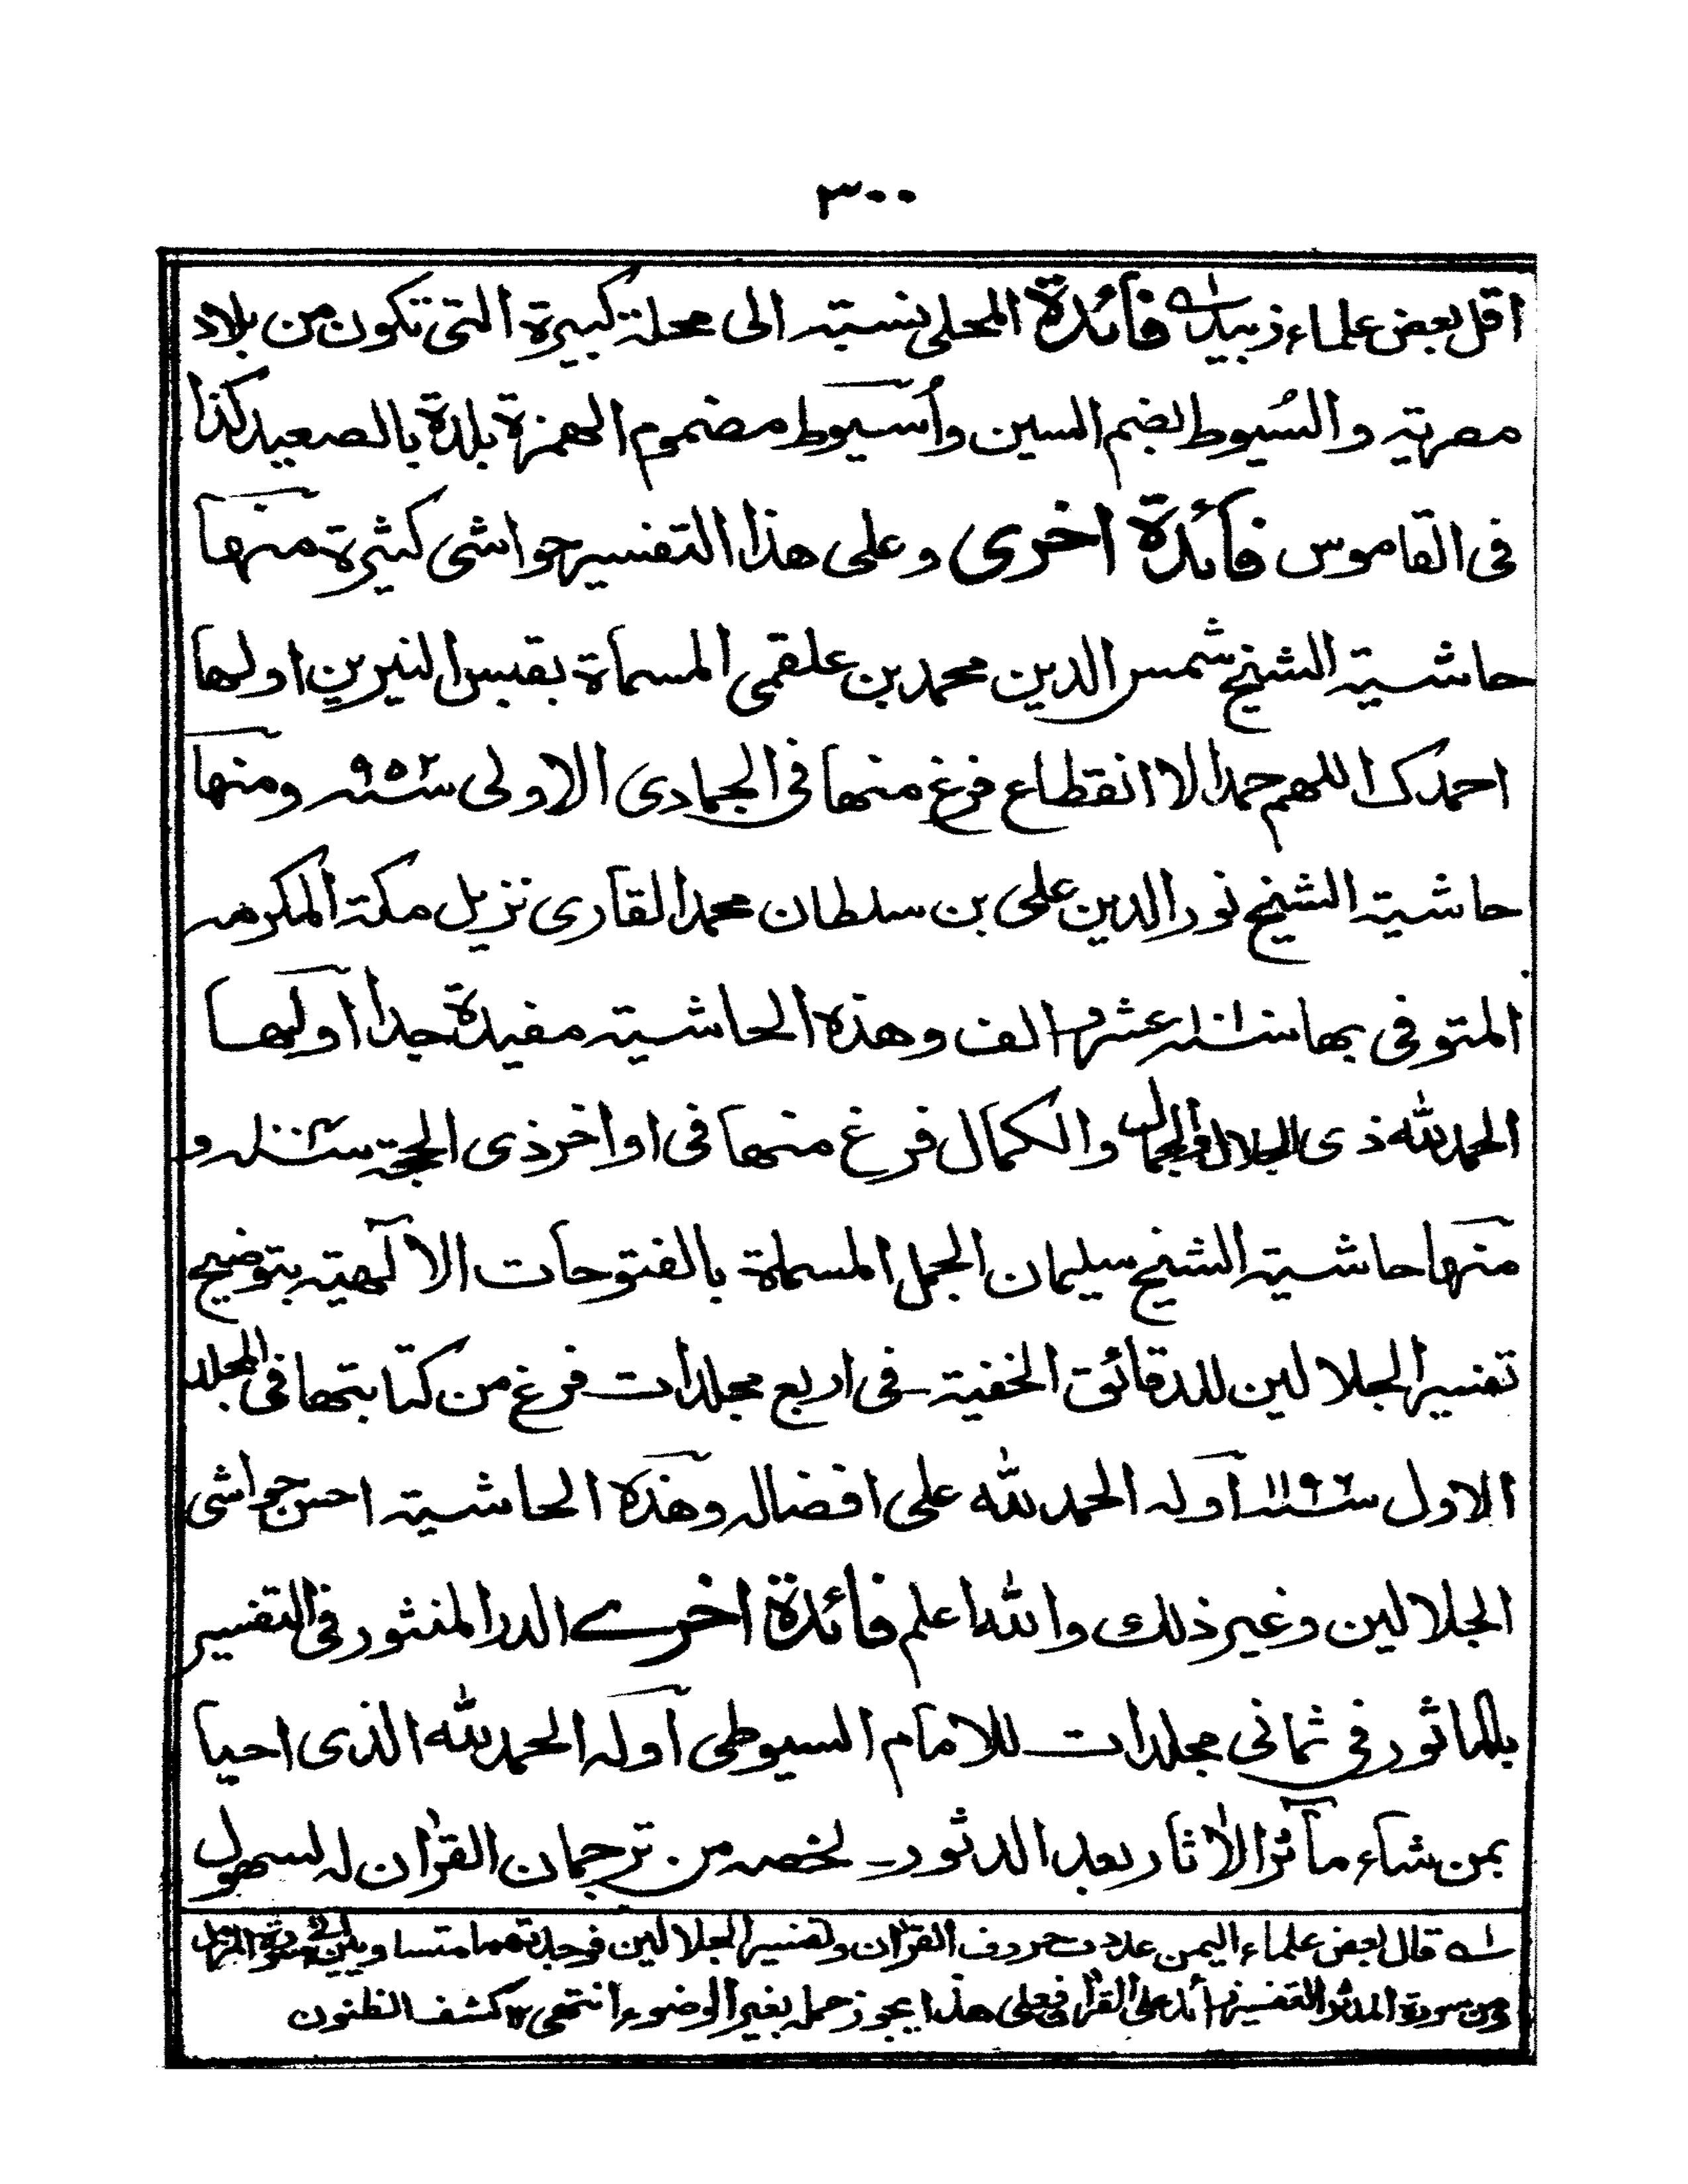 ٣٠٠
اقل بعض علماء زبيد ؎١ فائدة المحلى نسبته الى محلة كبيرة التى تكون من بلاد
مصريته والسُيوط بضم السين واُسيوط مضموم الهمزة بلدة بالصعيد كذا
فى القاموس فائدة اخرى وعلى هذا التفسير حواشى كثيرة منها
حاشيته الشيخ شمس الدين محمد بن علقمى المسماة بقبس النيرين اولها
احمدك اللهم حمدا لا انقطاع فرغ منها فى الجمادى الاولى سنه ٩٥٢ ومنها
حاشيته الشيخ نور الدين على بن سلطان محمد القارى نزيل مكة المكرمه
المتوفى بها سنه ١٠١٠ عشر و الف وهذه الحاشيته مفيدة جدا اولها
الحمد لله ذى الجلال والجمال والكمال فرغ منها فى اواخر ذى الحجة سنه ١٠٠٤ و
منها حاشيته الشيخ سليمان الجمل المسماة بالفتوحات الالهيته بتوضيح
تفسير الجلالين للدقائق الخفية ـ فى اربع مجلدات فرغ من كتابتها فى المجلد
الاول سنه ١١٩٦ اوله الحمد لله على افضاله وهذه الحاشيته احسن حواشى
الجلالين وغير ذلك والله اعلم فائدة اخرے الدر المنثور فى التفسير
بالماثور فى ثمانى مجلدات للامام السيوطى اوله الحمد لله الذى احيا
بمن شاء مآثر الاثار بعد الدثور ـ لخصه من ترجمان القرأن له لسهول
؎١ قال بعض علماء اليمن عددت حروف القرأن وتفسير الجلالين فوجدتهما متساويين الى سورة المزمل
ومن سورة المدثر التفسير زائد على القرأن فعلى هذا يجوز حمله بغير الوضوء انتهى ١٢ كشف الظنون